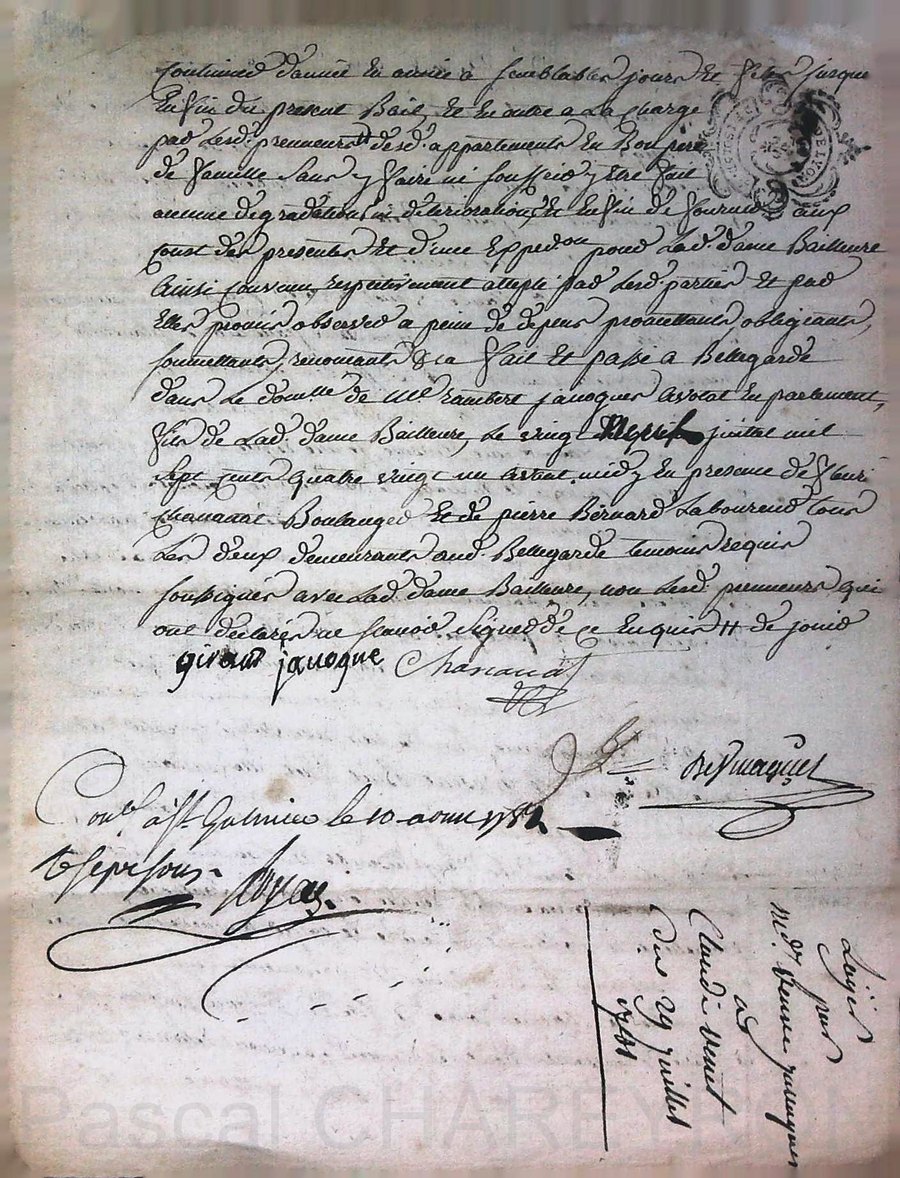 continuer d'année en année a semblables jours et fetes jusque
En fin du present Bail, Et En outre a La charge
par Lesd. prenneurs # desd. appartements En Bon pere
de famille sans y faire ni souffrir y Etre fait
aucune degradations ni deteriorations, Et Enfin de fournir aux
coust des presentes Et d'une Expedon pour Lad. dame Bailleure
Ainsi convenu, respectivement accepté par Lesd. parties Et par
Elles promis observer a peine de depens promettants, obligeants,
soumettants, renonçants &a fait Et passé a Bellegarde
dans Le domlle de me rambert javogues avocat En parlement,
fils de Lad. dame Bailleure, Le vingt neuf juillet mil
sept cents quatre vingt un avant midy En presence de fleuri
Chananat Boulanger Et de pierre Bernard Laboureur tous
Les deux demeurants aud. Bellegarde temoins requis
soussignés avec Lad. dame Bailleure, non Lesd. prenneurs qui
ont declarés ne sçavoir signer de ce Enquis # de jouir
girard javogue Chananat
Conlé à St Galmier le 10 aoust 1781
R sept sous
Loyer
par
md. veuve javogues
a
Claude venet
Du 29 juillet
1781
Pascal CHAREYRON